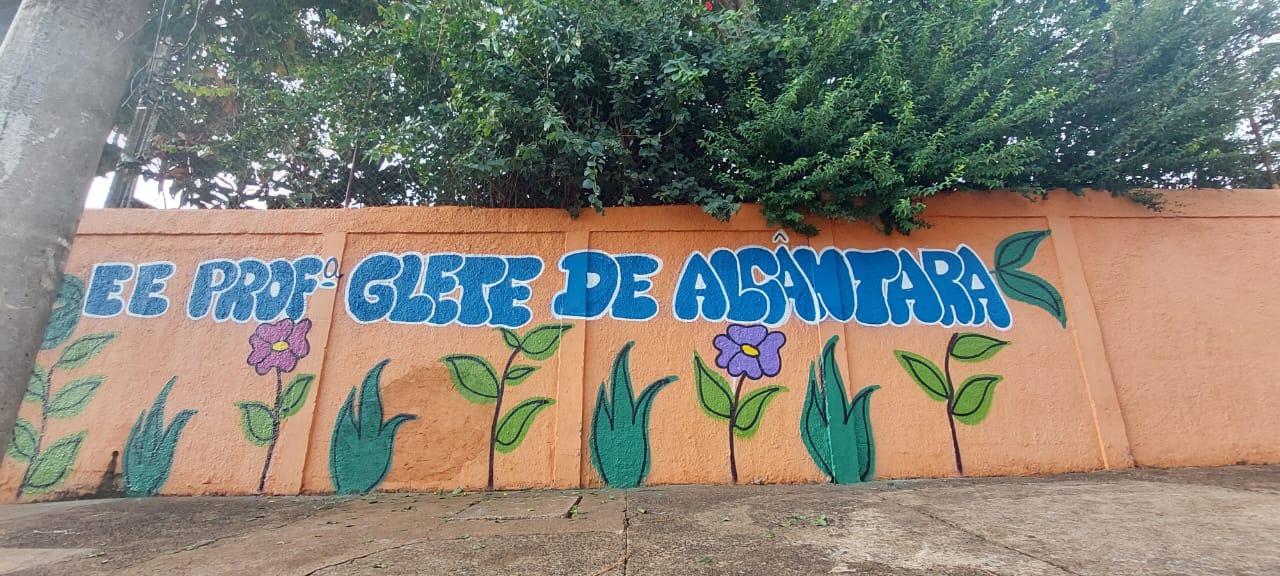 EE PROFª GLETE DE ALCÂNTARA